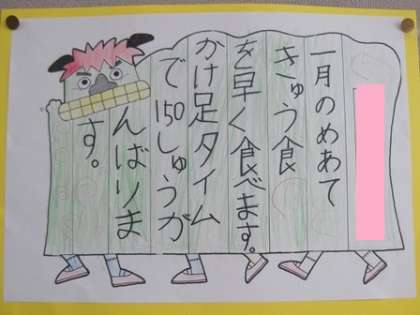 一月のめあて
きゅう食
を早く食べます。
かけ足タイム
で150しゅうが
んばりま
す。